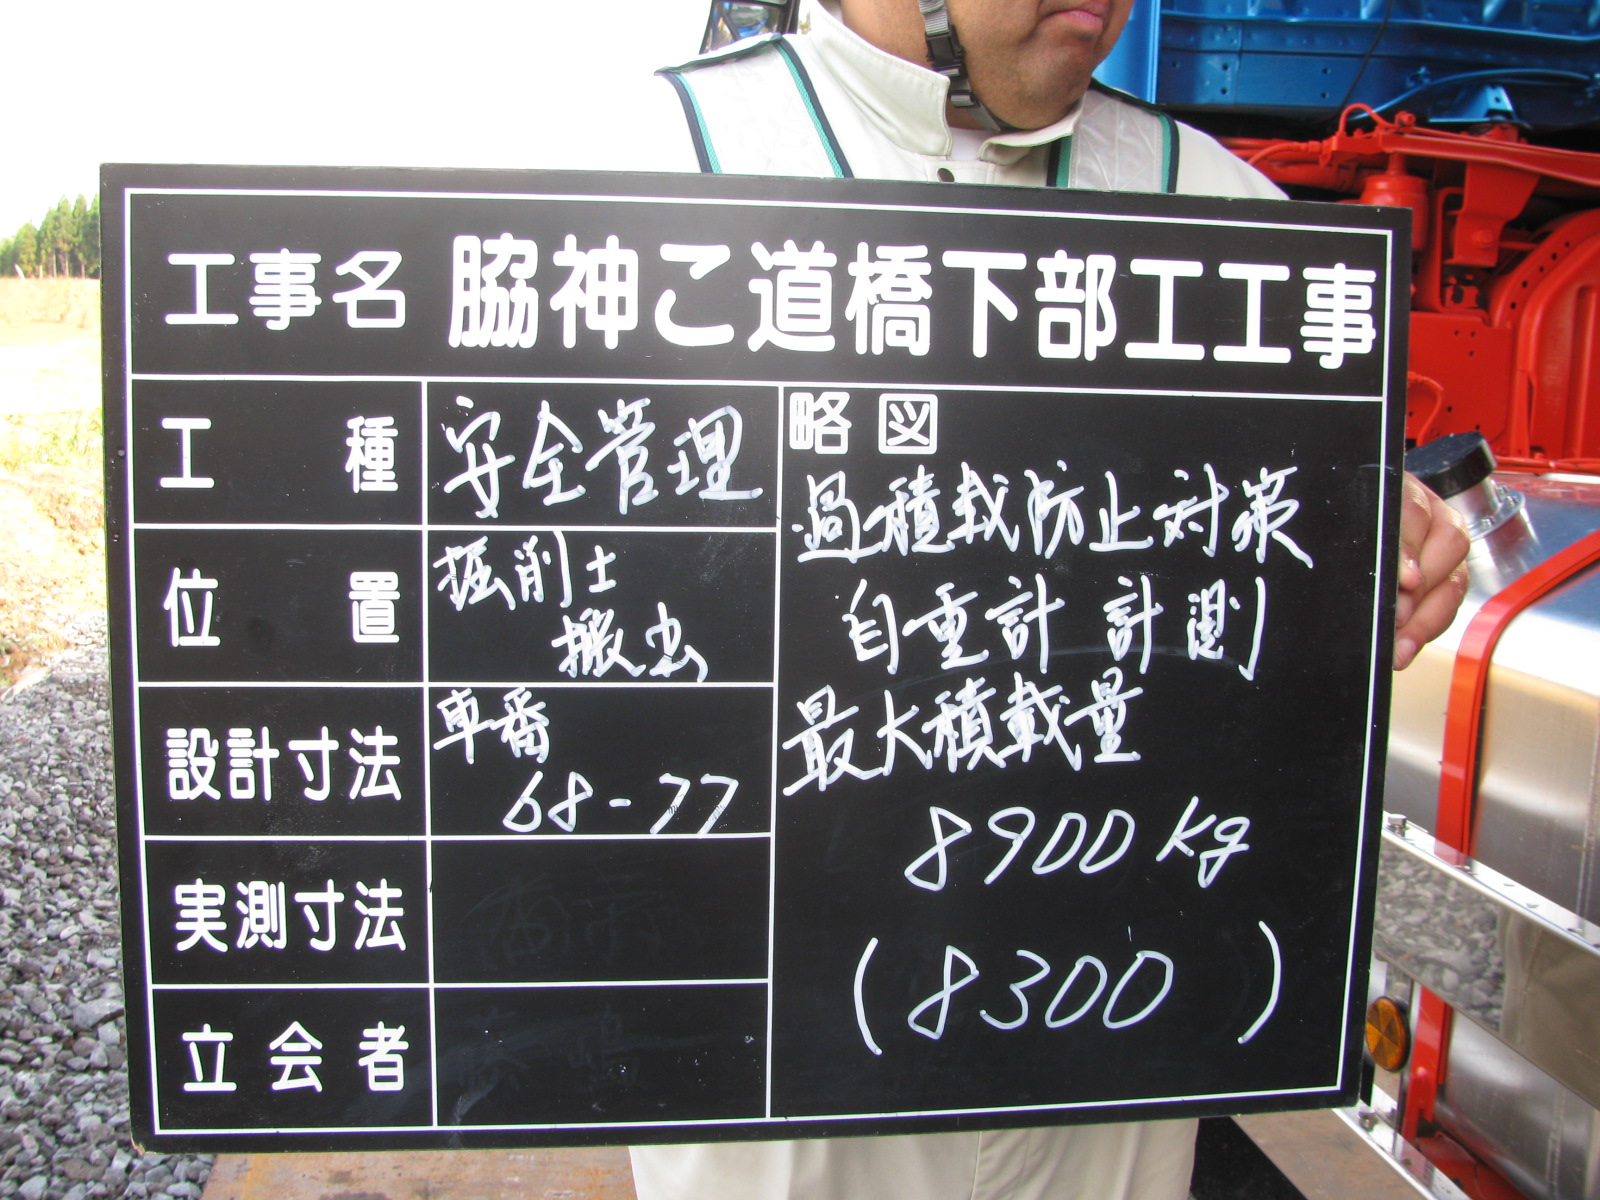 工事名 脇神こ道橋下部工工事
工種 安全管理
位置 掘削土
搬出
設計寸法 車番
68-77
実測寸法
立会者
略図
過積載防止対策
自重計 計測
最大積載量
8900 kg
(8300)